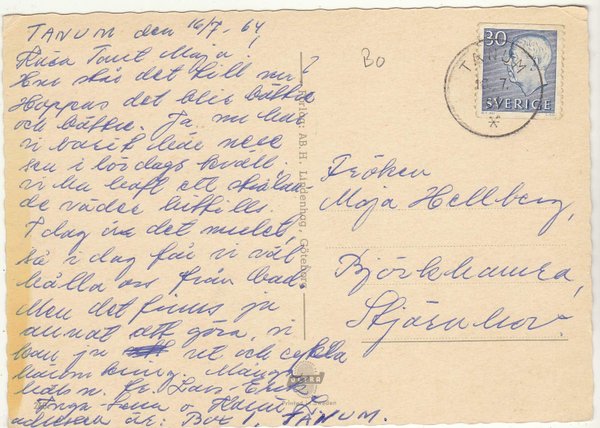 TANUM den 16/7 - 64
Kära Tant Maja!
Hur står det till nu?
Hoppas det blir bättre
och bättre. Ja nu har
vi varit här nere
sen i lördags kväll.
vi har haft ett strålan-
de väder hittills.
I dag är det mulet,
så i dag får vi väl
hålla oss från bad.
Men det finns ju
annat att göra, vi
kan ju ut och cykla
häromkring. Många
hälsn. fr. Lars-Erik
Inga-Lena o
adressen är: Box 1, TANUM.
Förlag: AB. H. Lindenhag, Göteborg
ULTRA
Printed in Sweden
BO
30
SVERIGE
TANUM
7.
Fröken
Maja Hellberg,
Björkhamra,
Stjärnhov.